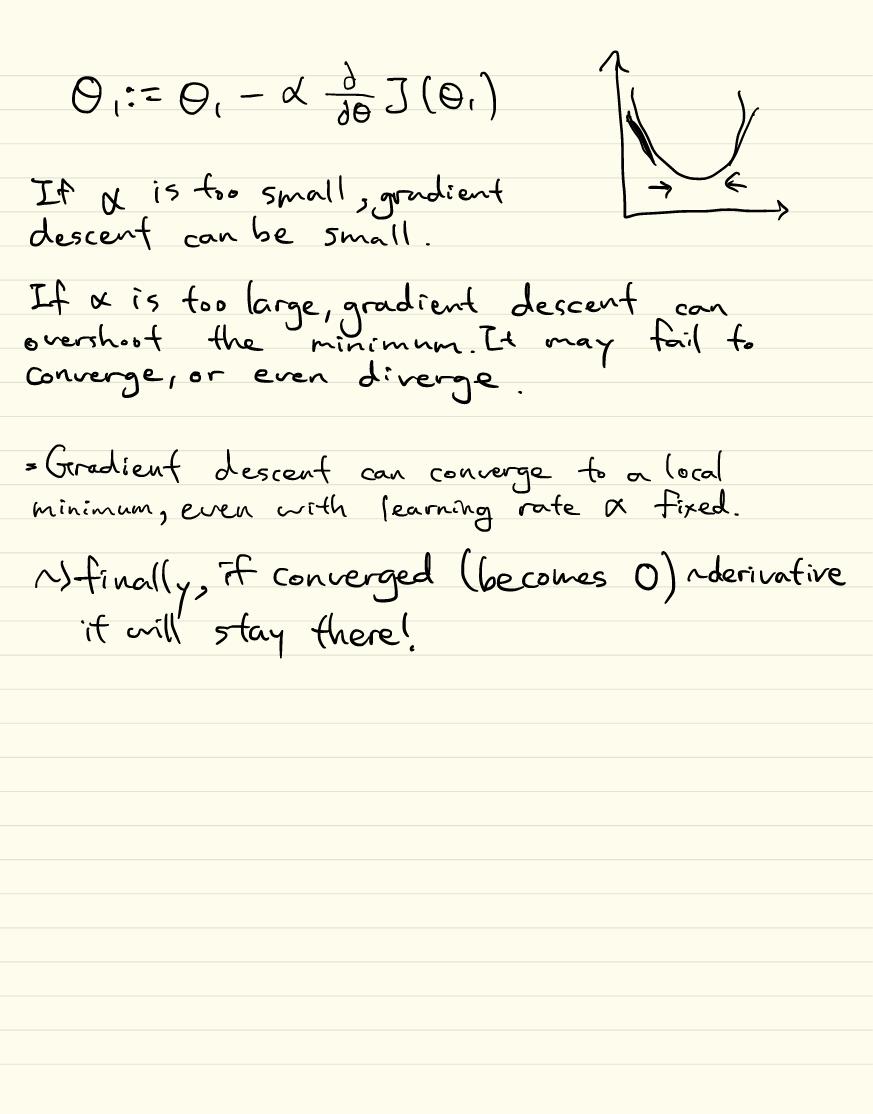 θ₁ := θ₁ - α d/dθ J(θ₁)
If α is too small, gradient
descent can be small.
If α is too large, gradient descent can
overshoot the minimum. It may fail to
converge, or even diverge.
- Gradient descent can converge to a local
minimum, even with learning rate α fixed.
~> finally, if converged (becomes 0) ~derivative
it will stay there!